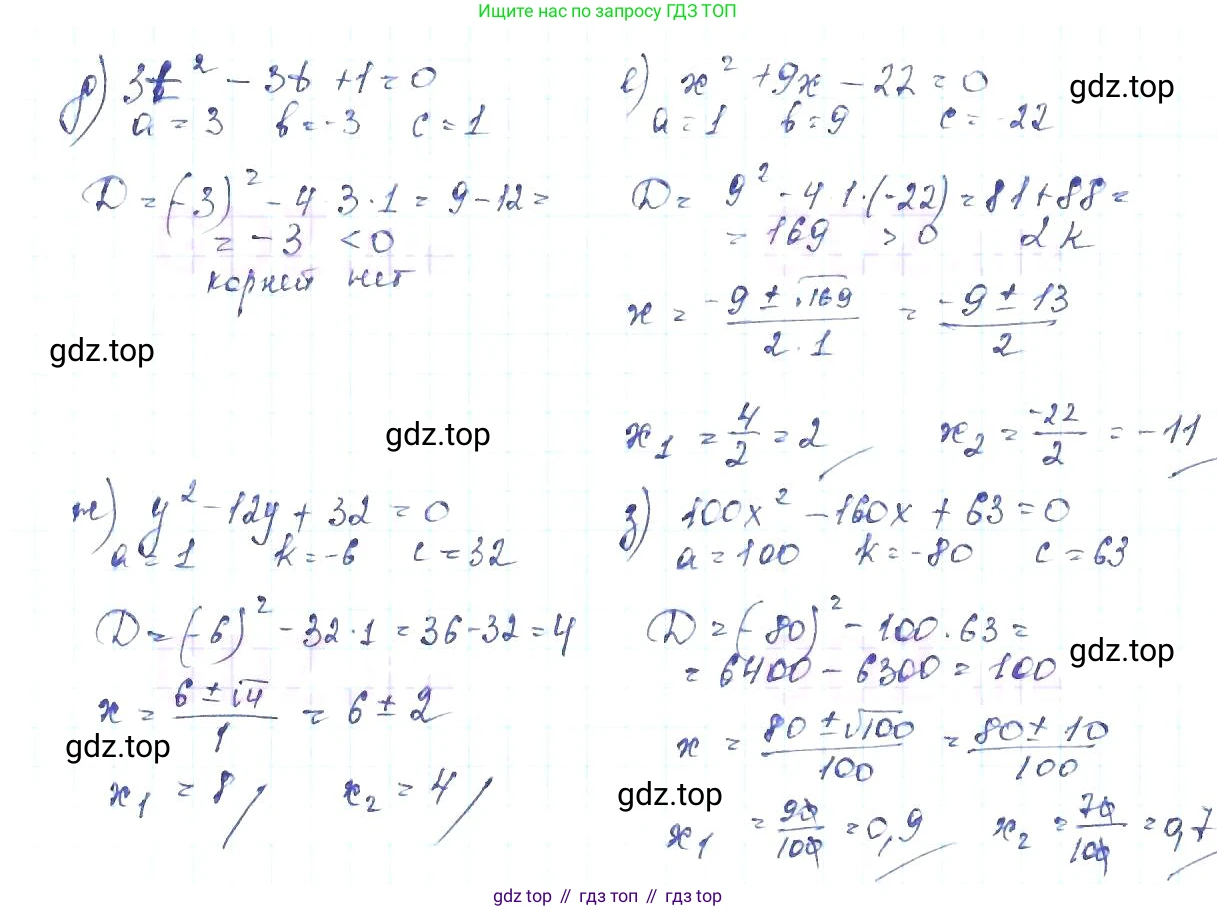 Ищите нас по запросу ГДЗ ТОП
д) 3t² - 3t + 1 = 0
a = 3 b = -3 c = 1
D = (-3)² - 4 3·1 = 9 - 12 =
= -3 < 0
корней нет
gdz.top
е) x² + 9x - 22 = 0
gdz.top
a = 1 b = 9 c = -22
D = 9² - 4 1·(-22) = 81 + 88 =
= 169 > 0 2 к
x = (-9 ± √169)/(2·1) = (-9 ± 13)/2
x₁ = 4/2 = 2 x₂ = -22/2 = -11
gdz.top
ж) y² - 12y + 32 = 0
a = 1 k = -6 c = 32
D = (-6)² - 32·1 = 36 - 32 = 4
x = (6 ± √4)/1 = 6 ± 2
gdz.top
x₁ = 8 x₂ = 4
з) 100x² - 160x + 63 = 0
a = 100 k = -80 c = 63
D = (-80)² - 100·63 =
gdz.top
= 6400 - 6300 = 100
x = (80 ± √100)/100 = (80 ± 10)/100
gdz.top
x₁ = 90/100 = 0,9 x₂ = 70/100 = 0,7
gdz.top // гдз топ // гдз.top